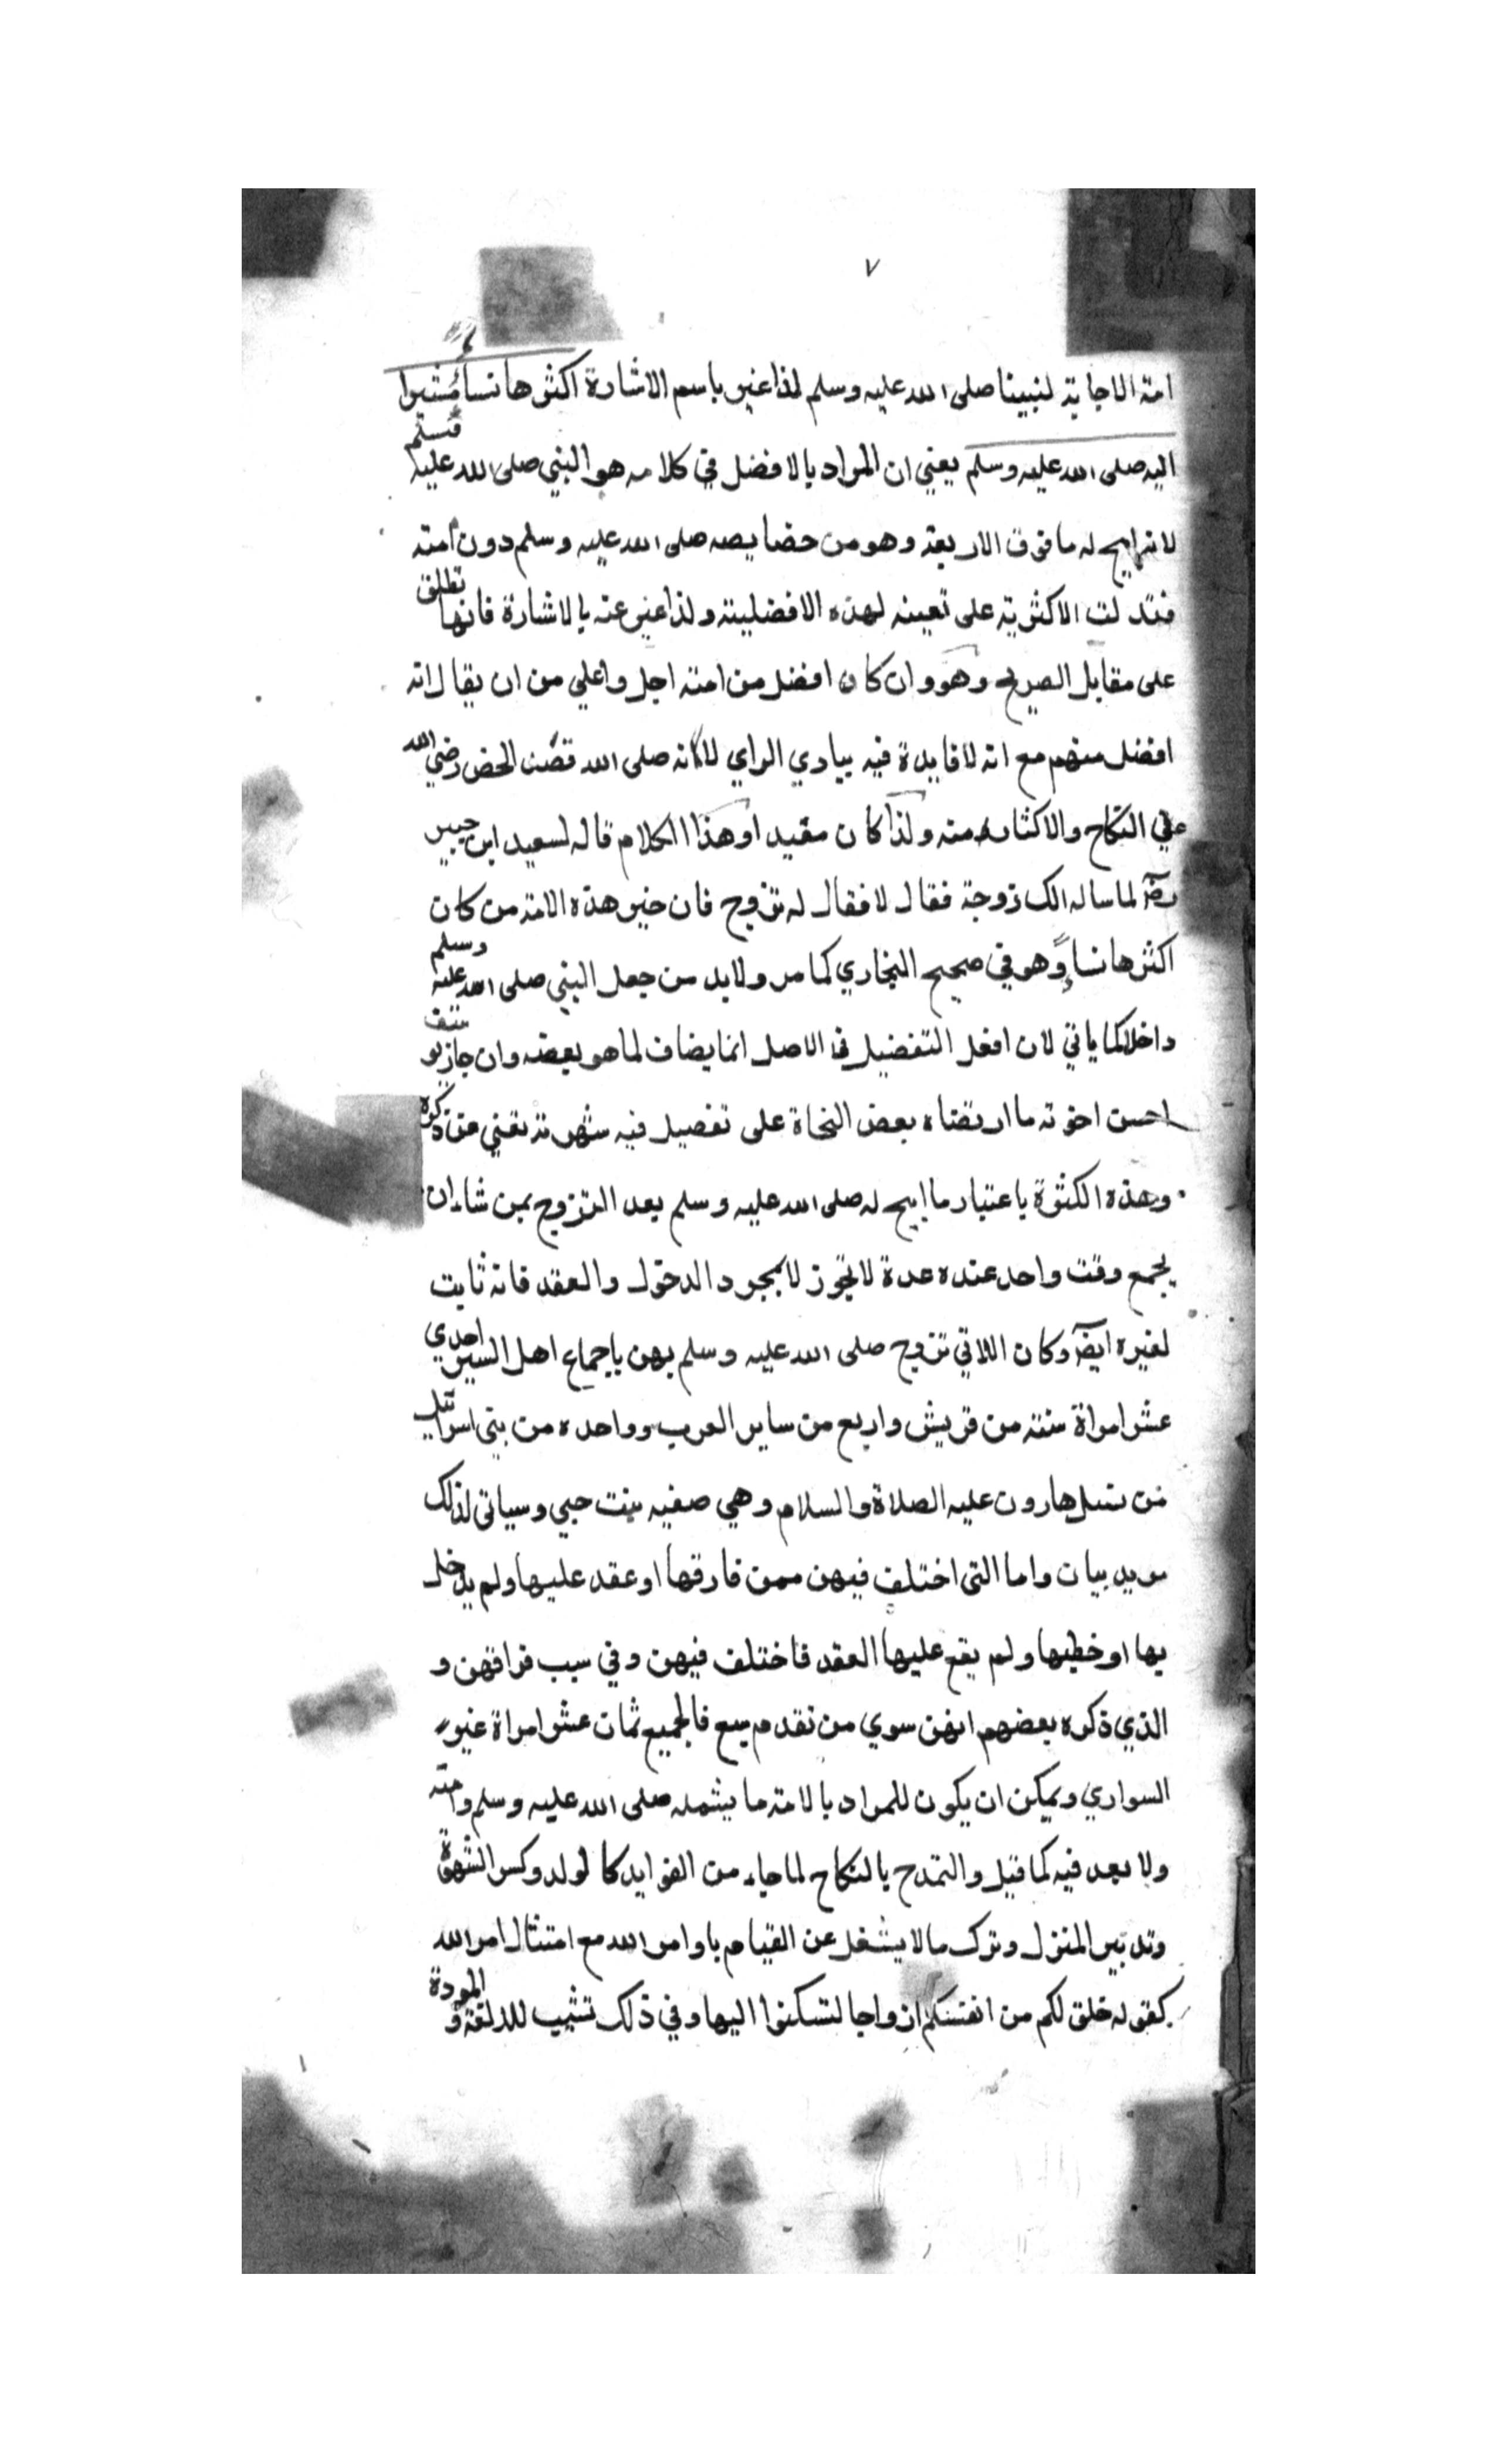 ٧
امة الاجابة لنبينا صلى الله عليه وسلم لذا عبر باسم الاشارة اكثرها نساء مشيرا
اليه صلى الله عليه وسلم يعني ان المراد بالافضل في كلامه هو النبي صلى الله عليه وسلم
لانه ابيح له ما فوق الاربعة وهو من خصايصه صلى الله عليه وسلم دون امته
فتدلت الاكثرية على تعيينه لهذه الافضلية ولذا عبر عنه بالاشارة فانها تطلق
على مقابل الصريح وهو وان كان افضل من امته اجل واعلي من ان يقال انه
افضل منهم مع انه لا فايدة فيه ببادي الراي لاانه صلى الله قصد الحض رضي الله
علي النكاح والاكثار منه ولذا كان مقيد او هذا الكلام قاله لسعيد ابن جبير
لما ساله الك زوجة فقال لا فقال له تزوج فان خير هذه الامة من كان
اكثرها نساء وهو في صحيح البخاري كما مر ولابد من جعل النبي صلى الله عليه وسلم
داخلا كما ياتي لان افعل التفضيل في الاصل انما يضاف لما هو بعضه وان جاز يوسف
احسن اخوته ما ارتضاه بعض النحاة على تفصيل فيه شهرته تغني عن ذكره
وهذه الكثرة باعتبار ما ابيح له صلى الله عليه وسلم بعد التزوج بمن شاء ان
يجمع وقت واحد عنده عدة لا تجوز لا بمجرد الدخول والعقد فانه ثابت
لغيره ايضا وكان اللاتي تزوج صلى الله عليه وسلم بهن باجماع اهل السير احدي
عشر امراة ستة من قريش واربع من ساير العرب وواحده من بني اسرائيل
من نسل هارون عليه الصلاة والسلام وهي صفيه بنت حيي وسياتي لذلك
مويد بيان واما التي اختلف فيهن ممن فارقها او عقد عليها ولم يدخل
بها او خطبها ولم يقع عليها العقد فاختلف فيهن وفي سبب فراقهن و
الذي ذكره بعضهم انهن سوي من تقدم سبع فالجميع ثمان عشر امراة غير
السراري ويمكن ان يكون للمراد بالامة ما يشمله صلى الله عليه وسلم وامته
ولا بعد فيه كما قيل والتمدح بالنكاح لما جاء من الفوايد كالولد وكسر الشهوة
وتدبير المنزل وترك مالا يشغل عن القيام باوامر الله مع امتثال امر الله
كقوله خلق لكم من انفسكم ازواجا لتسكنوا اليها وفي ذلك تشبب للالفة و المودة